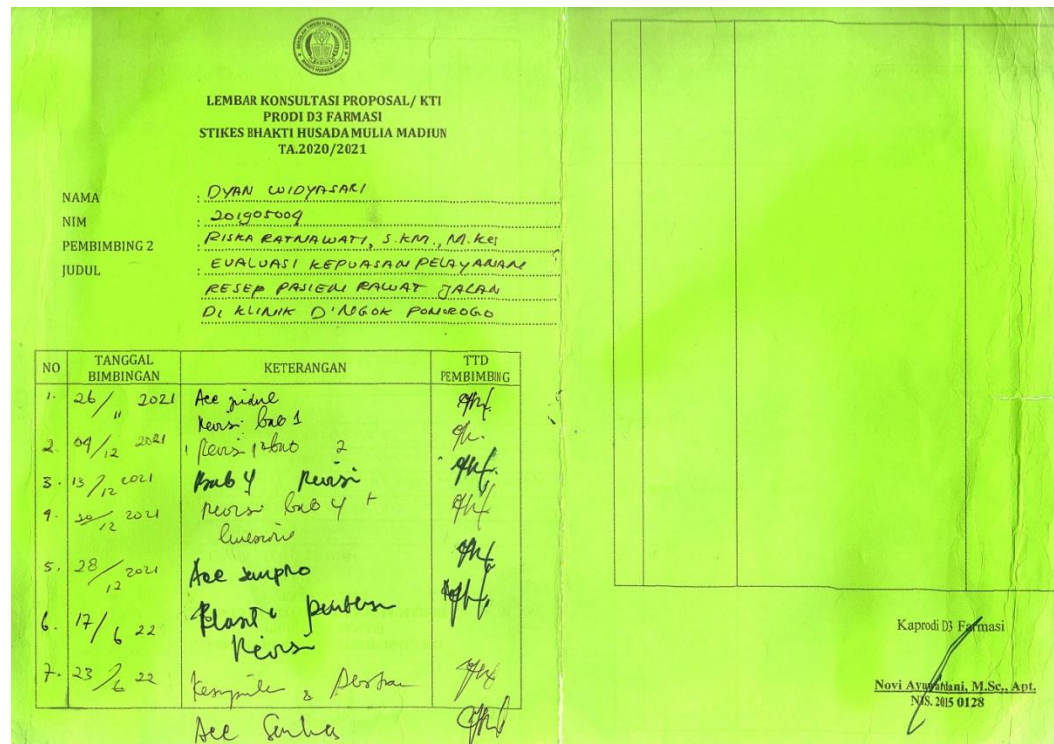 LEMBAR KONSULTASI PROPOSAL/ KTI
PRODI D3 FARMASI
STIKES BHAKTI HUSADA MULIA MADIUN
TA.2020/2021
NAMA : DYAN WIDYASARI
NIM : 201905009
PEMBIMBING 2 : RISKA RATNAWATI, S.KM., M.Kes
JUDUL : EVALUASI KEPUASAN PELAYANAN
RESEP PASIEN RAWAT JALAN
DI KLINIK D'NGOK PONOROGO
NO TANGGAL BIMBINGAN KETERANGAN TTD PEMBIMBING
1. 26/11 2021 Acc judul
Revisi bab 1
2. 04/12 2021 Revisi 2
3. 13/12 2021 Bab 4 Revisi
4. /12 2021 Revisi bab 4 +
5. 28/12 2021 Acc sempro
6. 17/6 22
Revisi
7. 23/6 22 &
Acc
Kaprodi D3 Farmasi
Novi Ayuwardani, M.Sc., Apt.
NIS. 2015 0128